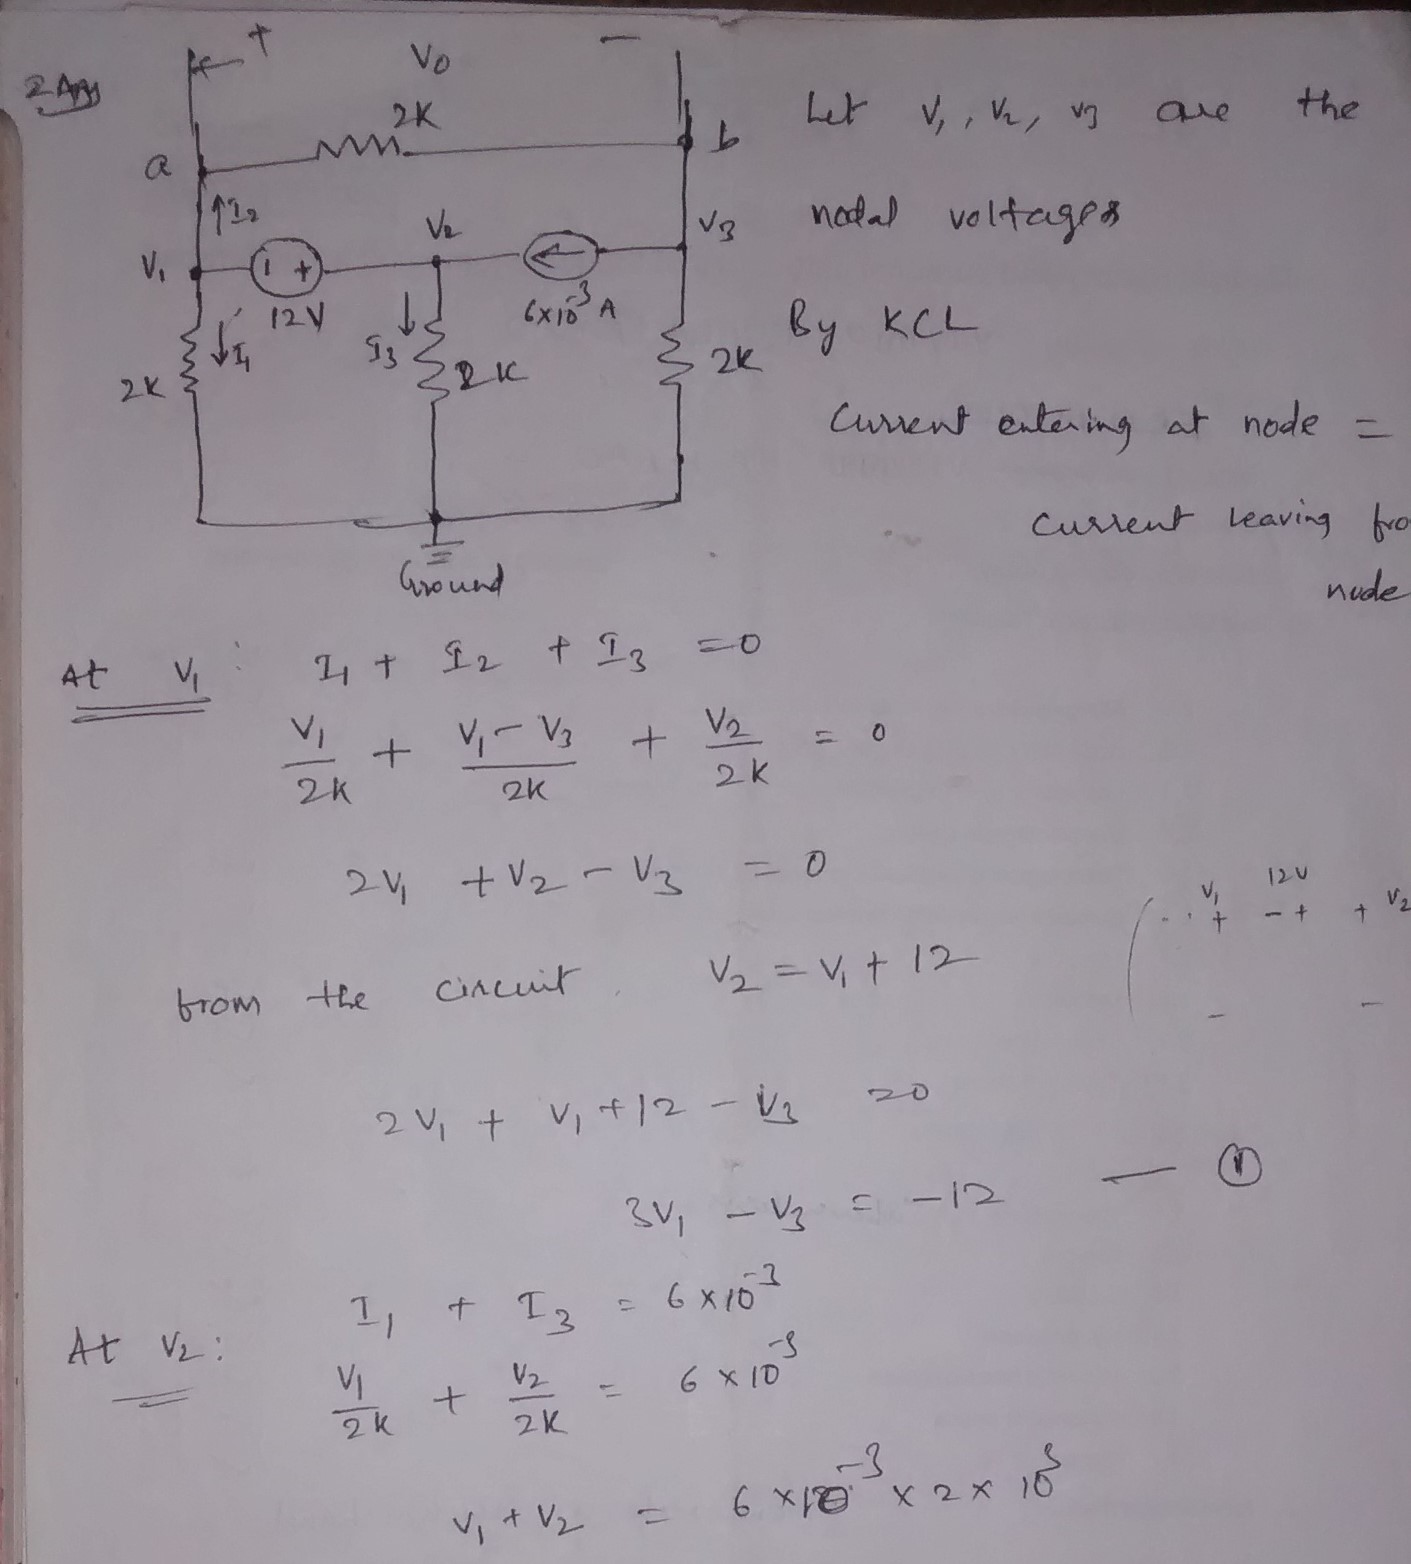 2 Ans
+ V0 -
2K
a b
↑I2
V1 V2 V3
- +
12V 6x10^-3 A
↓I1 I3↓
2K 2K 2K
Ground
Let V1, V2, V3 are the
nodal voltages
By KCL
Current entering at node =
current leaving fro
node
At V1: I1 + I2 + I3 =0
V1/2K + V1-V3/2K + V2/2K = 0
2V1 + V2 - V3 = 0
from the circuit V2 = V1 + 12
V1 12V V2
+ - + +
- -
2V1 + V1 +12 - V3 =0
3V1 - V3 = -12 — ①
At V2: I1 + I3 = 6x10^-3
V1/2K + V2/2K = 6x10^-3
V1 + V2 = 6x10^-3 x 2x10^3